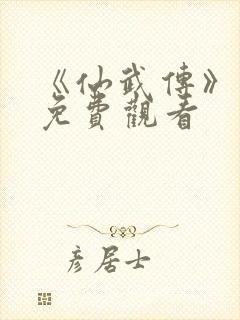 《仙武傳》
免費觀看
彥居士